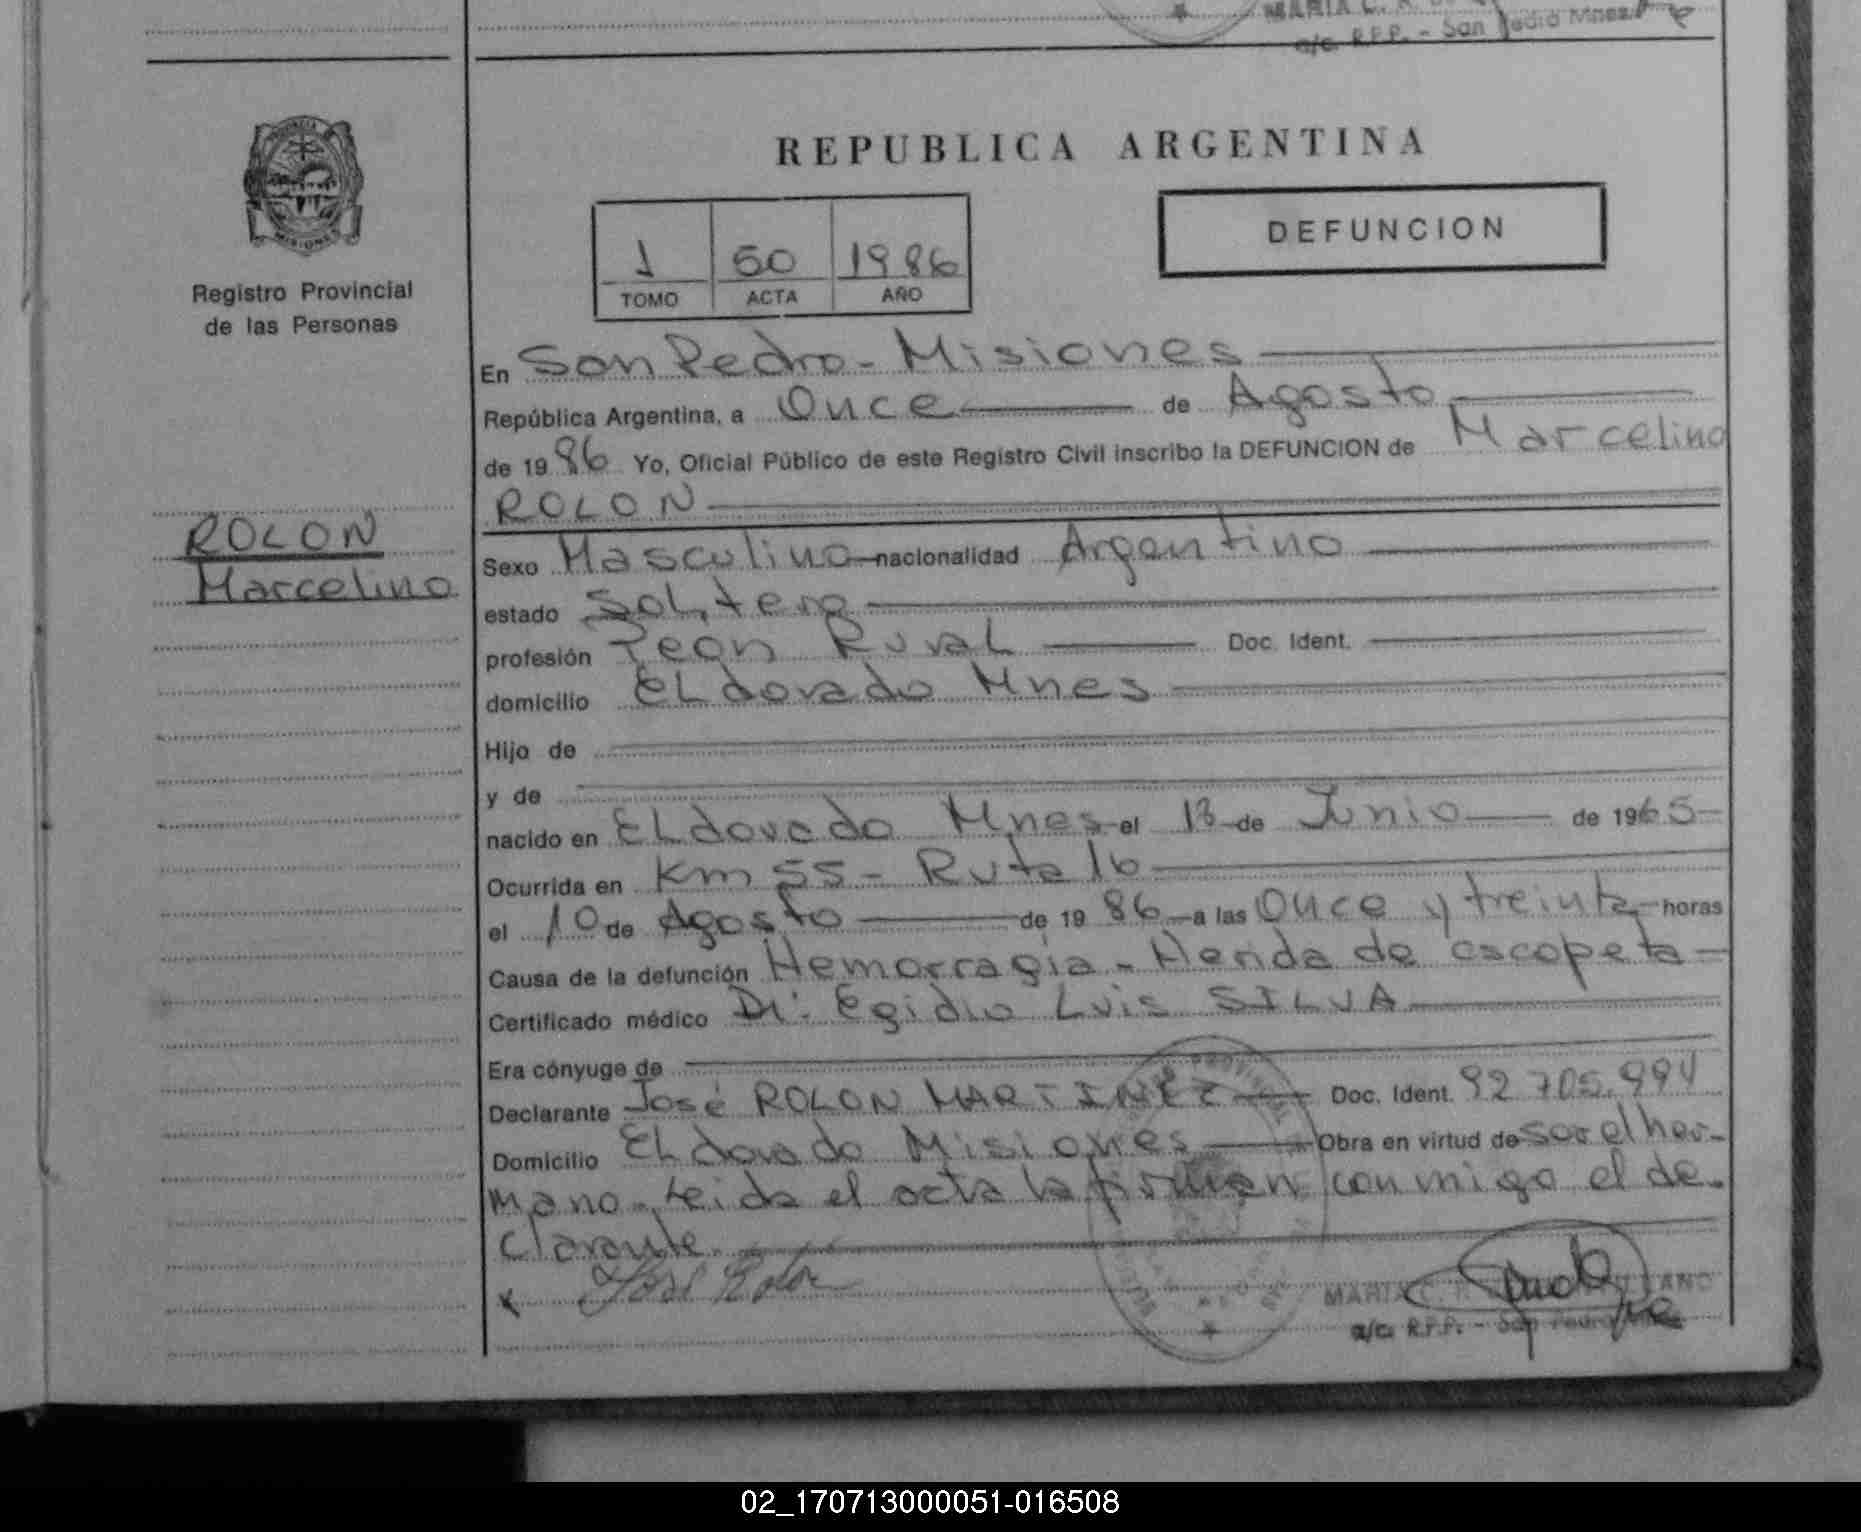 MARIA C.
a/c. R.P.P. - San Pedro Mnes.
REPUBLICA ARGENTINA
PROVINCIA
MISIONES
Registro Provincial
de las Personas
1 50 1986
TOMO ACTA AÑO
DEFUNCION
En San Pedro - Misiones
República Argentina, a Once de Agosto
de 1986 Yo, Oficial Público de este Registro Civil inscribo la DEFUNCION de Marcelino
ROLON
ROLON
Marcelino
Sexo Masculino nacionalidad Argentino
estado Soltero
profesión Peon Rural Doc. Ident.
domicilio ELdorado Mnes
Hijo de
y de
nacido en ELdorado Mnes el 13 de Junio de 1965
Ocurrida en Km 55 - Ruta 16
el 10 de Agosto de 1986 a las Once y treinta horas
Causa de la defunción Hemorragia - Herida de escopeta
Certificado médico Dr. Egidio Luis SILVA
Era cónyuge de
Declarante José ROLON MARTINEZ Doc. Ident. 92.705.994
Domicilio ELdorado Misiones Obra en virtud de ser el her-
mano. Leida el acta la firman conmigo el de-
clarante.
x José Rolon
MARIA C.
a/c. R.P.P. - San Pedro Mnes
02_170713000051-016508